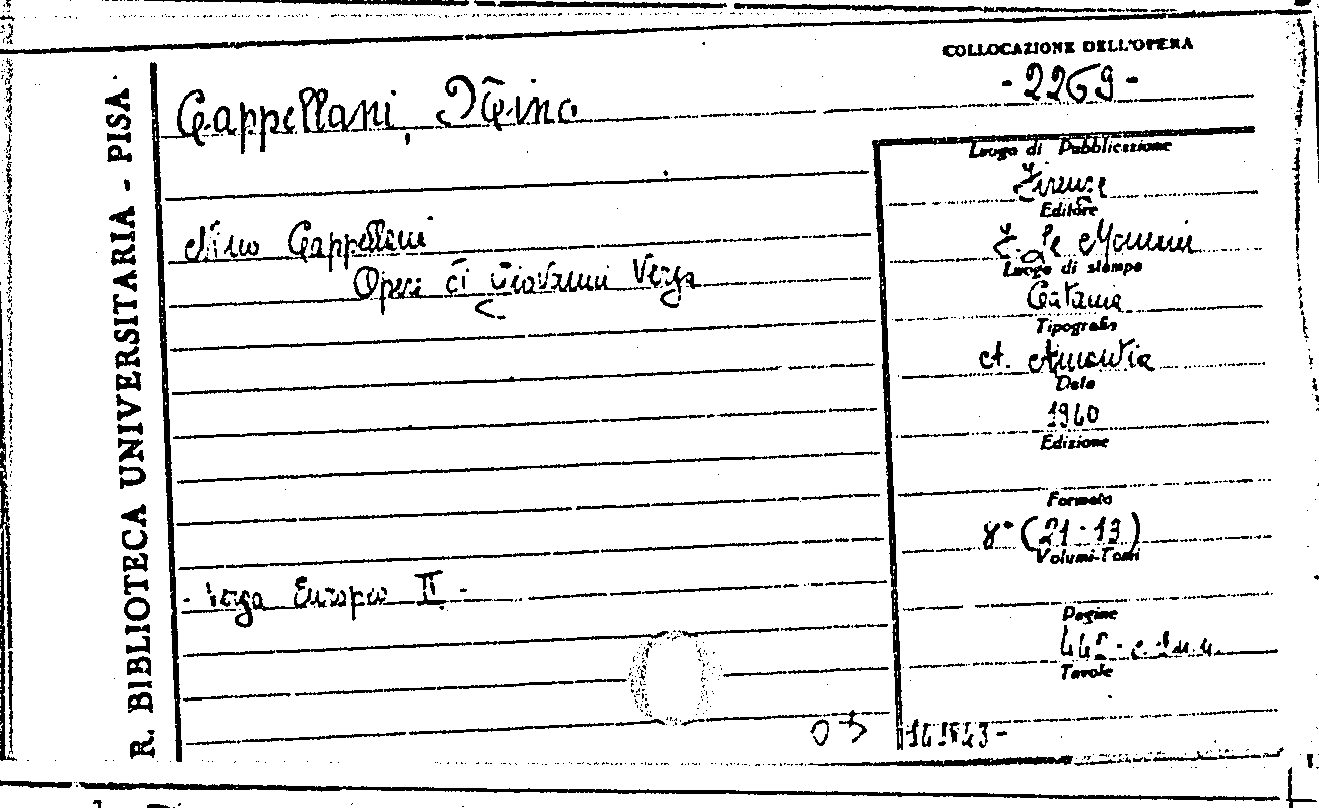 COLLOCAZIONE DELL'OPERA
- 2269 -
R. BIBLIOTECA UNIVERSITARIA - PISA
Cappellani, Nino
Luogo di Pubblicazione
Firenze
Editore
Nino Cappellani
F. Le Monnier
Opere di Giovanni Verga
Luogo di stampa
Catania
Tipografia
A. Amantia
Data
1940
Edizione
Formato
8° (21-13)
Volumi-Tomi
- Verga Europeo II -
Pagine
Tavole